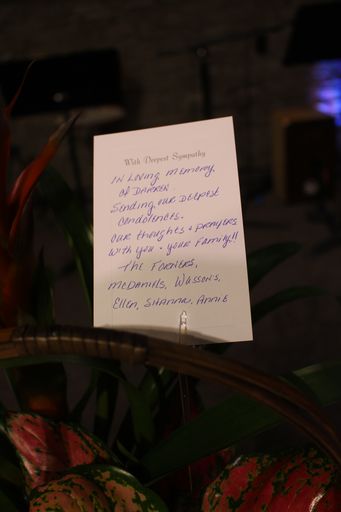 With Deepest Sympathy
IN Loving memory
OF DARREN.
Sending our DEEPEST
Condolences.
Our thoughts + prayers
With you + your Family!!
The Forners,
McDaniels, Wassons,
Ellen, SHANNA, ANNIE